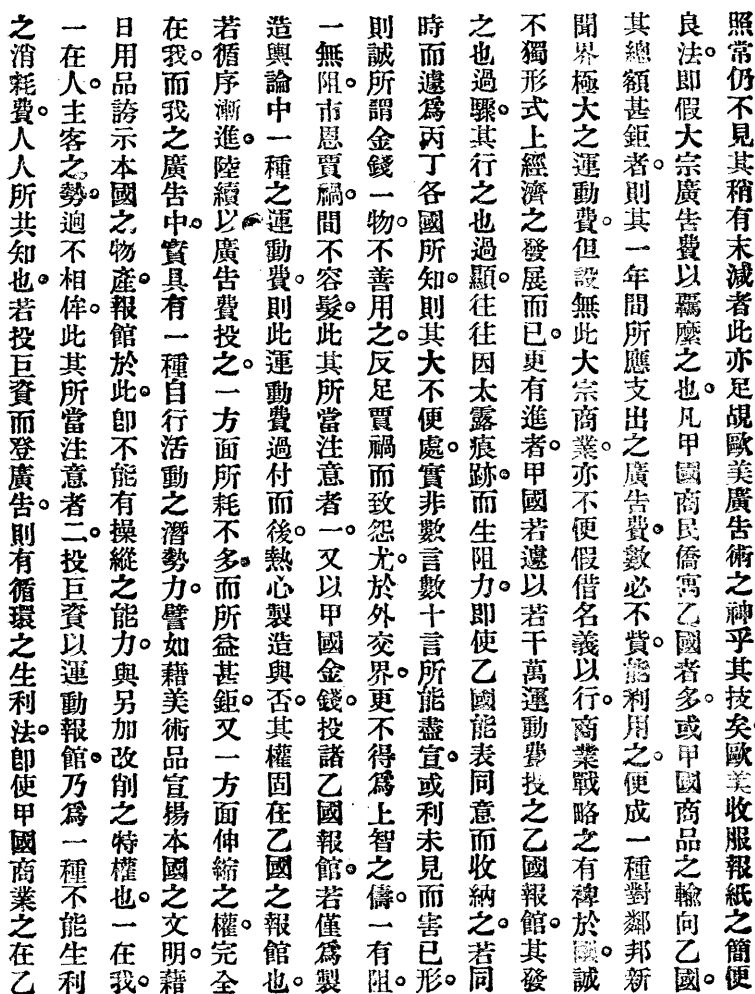 照常仍不見其稍有末減者此亦足覘歐美廣告術之神乎其技矣歐美收服報紙之簡便
良法。即假大宗廣告費以羈縻之也。凡甲國商民僑寓乙國者多。或甲國商品之輸向乙國。
其總額甚鉅者。則其一年間所應支出之廣告費。數必不貲。能利用之。便成一種對鄰邦新
聞界極大之運動費。但設無此大宗商業。亦不便假借名義以行。商業戰略之有裨於國。誠
不獨形式上經濟之發展而已。更有進者。甲國若遽以若干萬運動費投之乙國報館。其發
之也過驟。其行之也過顯。往往因太露痕跡。而生阻力。即使乙國能表同意而收納之。若同
時而遽爲丙丁各國所知。則其大不便處。實非數言數十言所能盡宣。或利未見而害已形。
則誠所謂金錢一物。不善用之。反足賈禍而致怨尤。於外交界。更不得爲上智之儔。一有阻。
一無阻。市恩賈禍。間不容髮。此其所當注意者一。又以甲國金錢。投諸乙國報館。若僅爲製
造輿論中一種之運動費。則此運動費過付而後。熱心製造與否。其權固在乙國之報館也。
若循序漸進。陸續以廣告費投之。一方面所耗不多。而所益甚鉅。又一方面伸縮之權。完全
在我。而我之廣告中。實具有一種自行活動之潛勢力。譬如藉美術品宣揚本國之文明。藉
日用品誇示本國之物產。報館於此。即不能有操縱之能力。與另加改削之特權也。一在我。
一在人。主客之勢。逈不相侔。此其所當注意者二。投巨資以運動報館。乃爲一種不能生利
之消耗費。人人所共知也。若投巨資而登廣告。則有循環之生利法。即使甲國商業之在乙